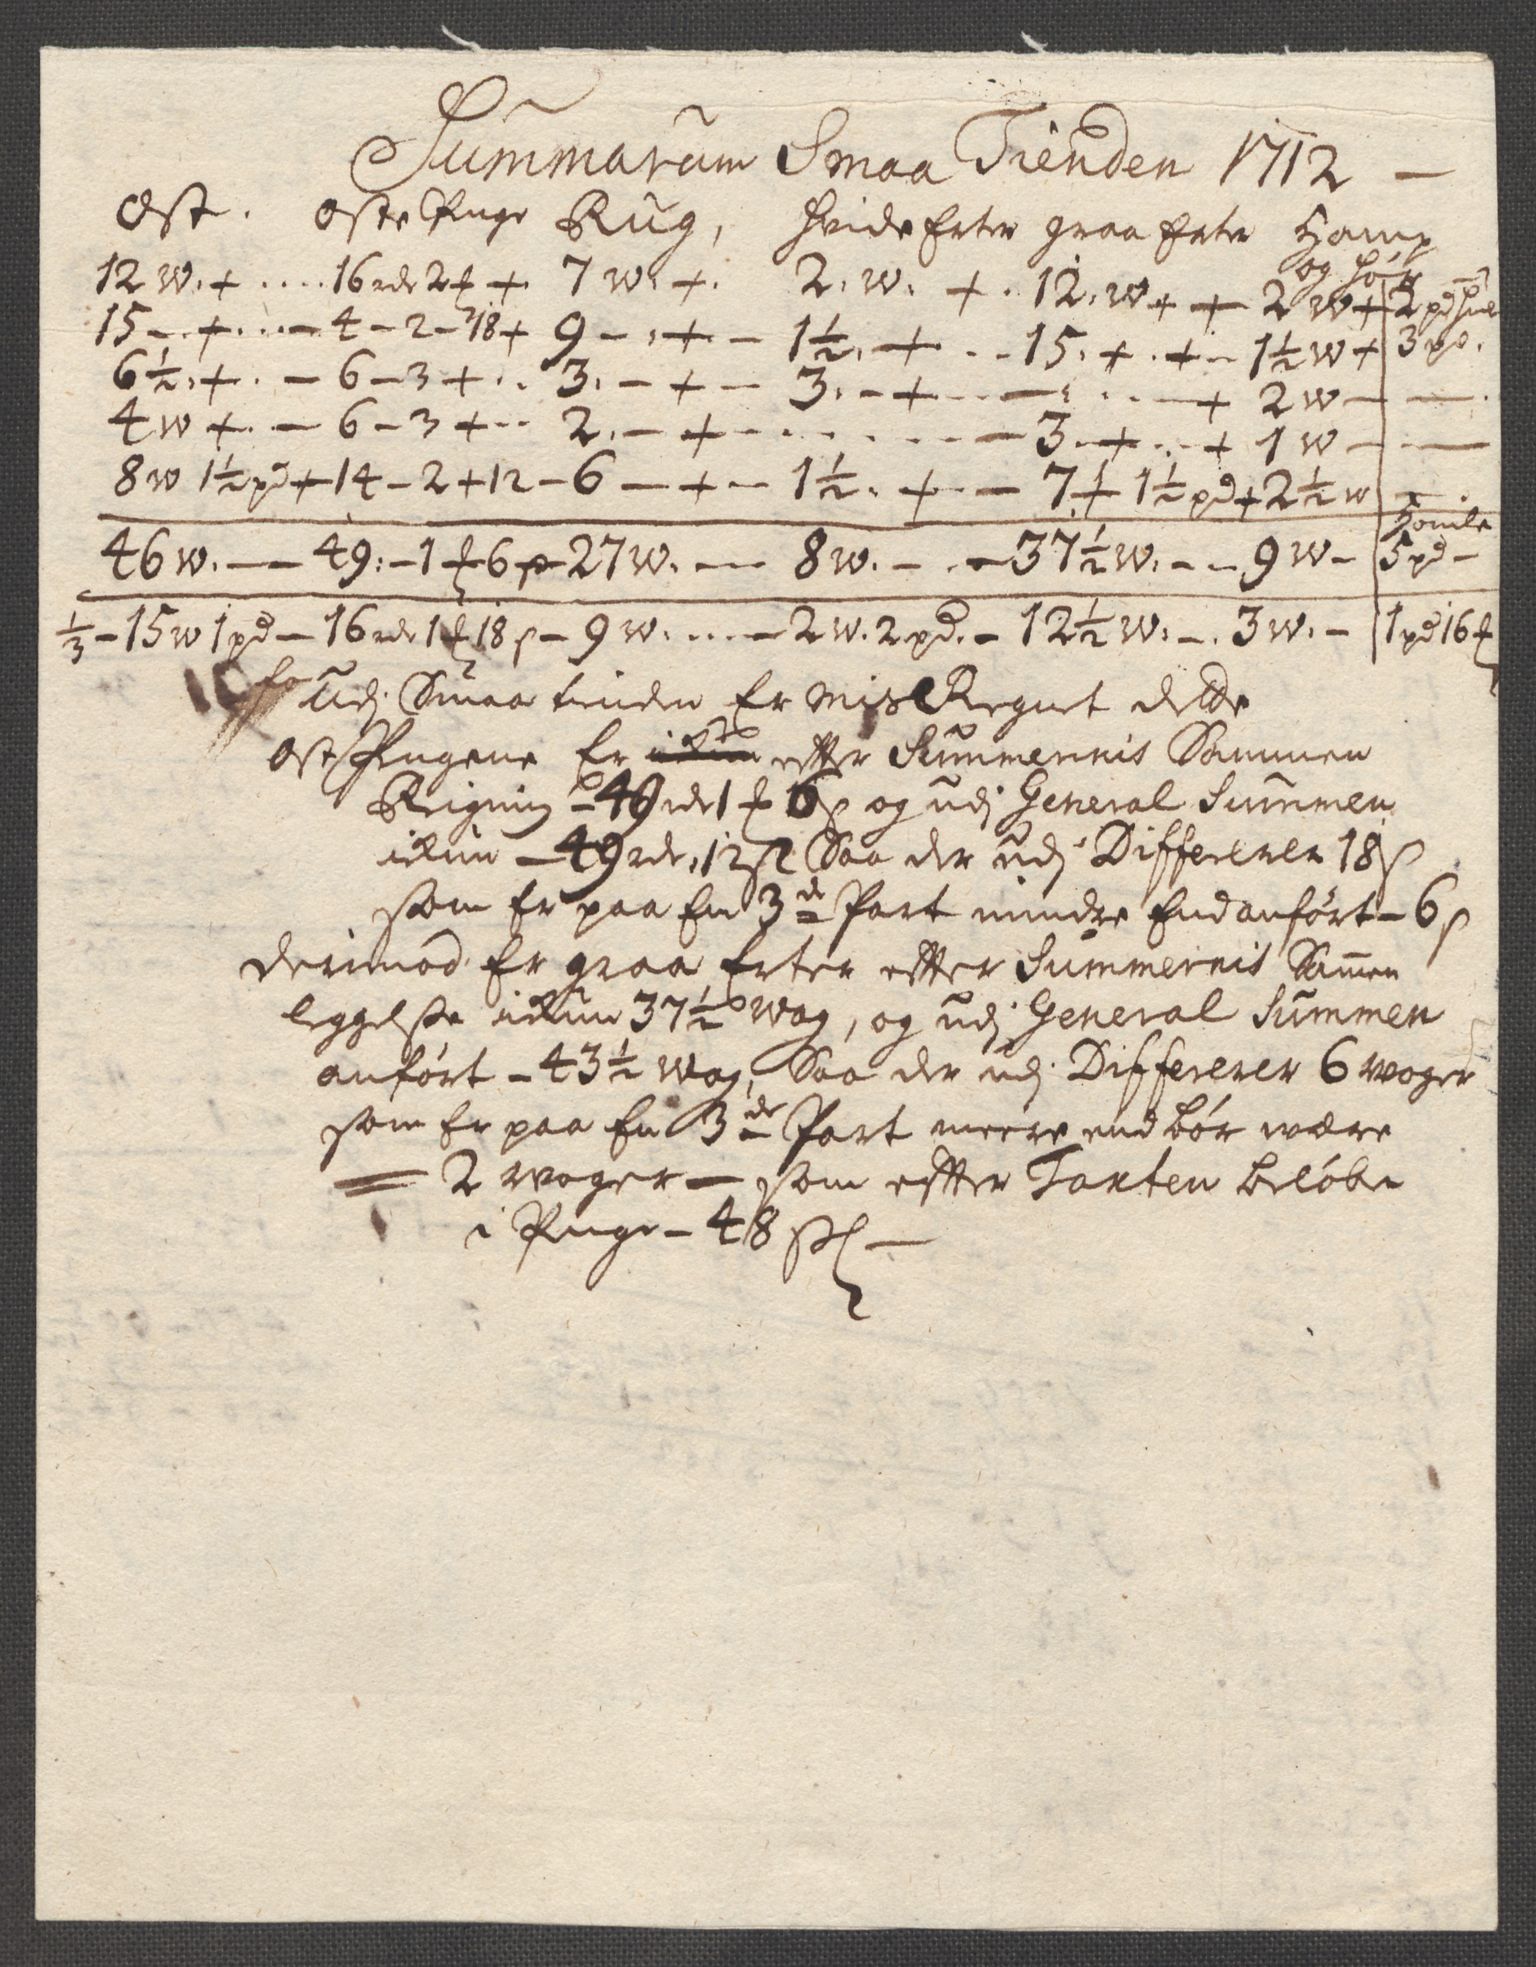 Summarum Smaa Tienden 1712 —
Ost. Oste Penge Rug, Hvide Erter graa Erter Hamp
og Hör
12 W. + .... 16 rdr 2 + 7 W. +. 2. W. + . 12. W + + 2 W + 2 pd
15 - . + . . - 4 - 2 - 18 + 9 - . + - 1½ . + . . 15. + . + - 1½ W + 3 pd.
6½ . + . - 6 - 3 + .. 3. - + - 3. - + . . — . . . - + 2 W — — .
4 W + . - 6 - 3 + .. 2. - + - . . . . . — 3 . + . . + 1 W — —
8 W 1½ pd + 14 - 2 + 12 - 6 — + - 1½ . + . — 7 + 1½ pd + 2½ W —
Homle
46 W. — 49: - 1 6 s - 27 W. — 8 W. - . - 37½ W. - - 9 W - 5 pd -
⅓ - 15 W 1 pd - 16 rdr 1 18 s - 9 W. ... - 2 W. 2 pd. - 12½ W. - . 3 W. - 1 pd 16
Udj Smaa tienden Er Mis Regnet dette
Ost Pengene Er efter Summernis Sammen
Regning - 49 rdr 1 6 s og udj General Summen
ickun - 49 rdr, 12 s Saa der udj Differerer 18 s
som Er paa En 3de Part mindre End anfört - 6 s
derimod Er graa Erter efter Summernis Samen
leggelse ickun 37½ Wog, og udj General Summen
anfört - 43½ Wog, Saa der udj Differerer 6 woger
som Er paa En 3de Part meere end bör være
= 2 woger — som efter Taxten belöber
i Penge - 48 s —